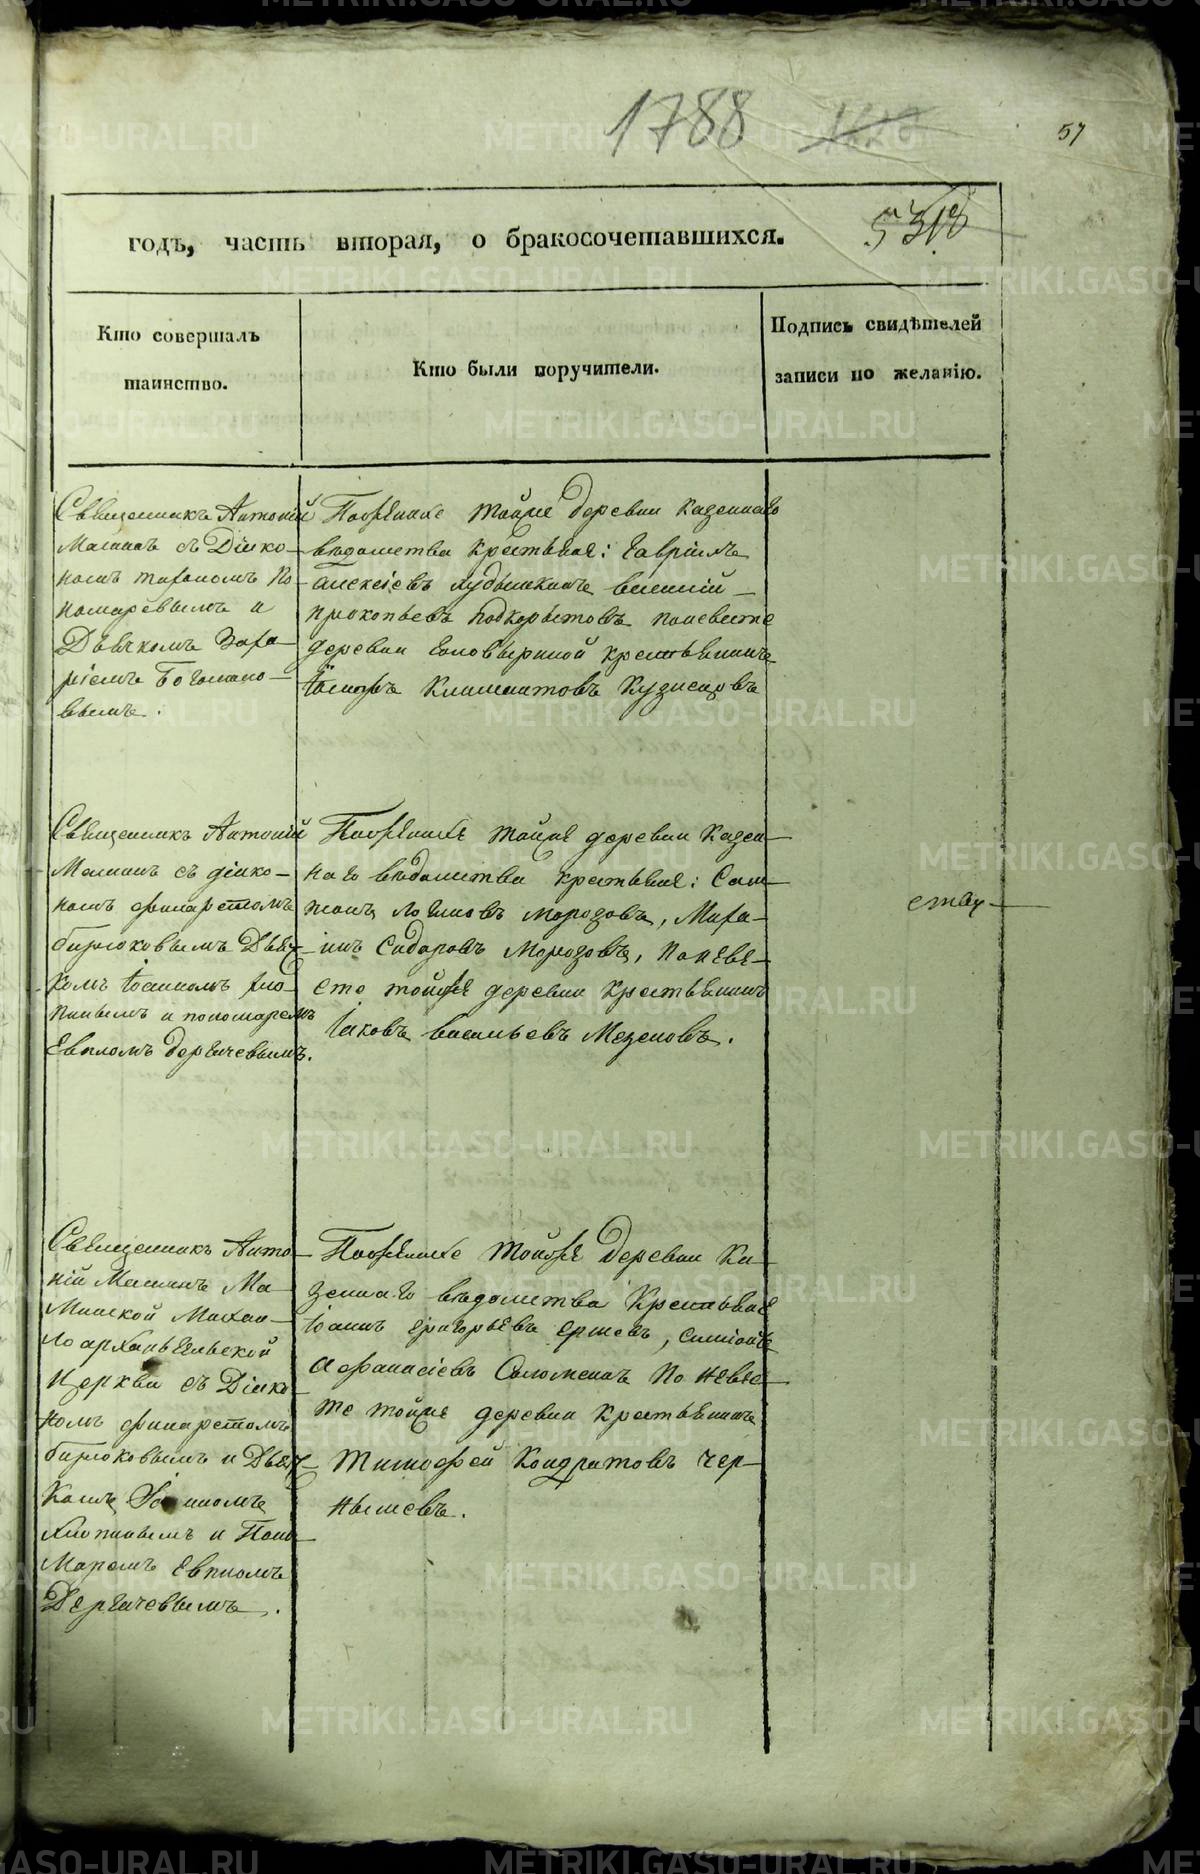 1788
57
годъ, часть вторая, о бракосочетавшихся.
Кто совершалъ
таинство.
Кто были поручители.
Подпись свидѣтелей
записи по желанію.
Священникъ Антоній
съ Діако-
номъ По-
номаревымъ и
Дьячкомъ Заха-
ріемъ
вымъ.
Поженихе тойже деревни казеннаго
ведомства крестьяне: Гавріилъ
Алексіевъ
прокопьевъ Подкорытовъ поневесте
деревни крестьянинъ
Климантовъ Кузнецовъ
Священникъ Антоній
съ діако-
номъ филаретомъ
бирюковымъ Дьяч-
комъ Іоанномъ хло-
пинымъ и пономаремъ
Евпломъ Дерягачевымъ.
Поженихе тойже деревни Казен-
наго ведомства крестьяне: Сам-
сонъ Логиновъ Морозовъ, Миха-
илъ Сидоровъ Морозовъ, поневе-
сте тойже деревни крестьянинъ
Іаковъ васильевъ Мезеновъ.
ству-
Священникъ Анто-
ній Ма-
минской Михаи-
ло архангельской
Церкви съ Діако-
номъ филаретомъ
бирюковымъ и Дьяч-
комъ Іоанномъ
Хлопинымъ и Поно-
Маремъ Евпломъ
Поженихе тойже Деревни Ка-
зеннаго ведомства Крестьяне
Іоаннъ григорьевъ ершовъ, симіонъ
Афанасіевъ По невес-
те тойже деревни крестьянинъ
Тимофей Кондратовъ Чер-
нышевъ.
METRIKI.GASO-URAL.RU